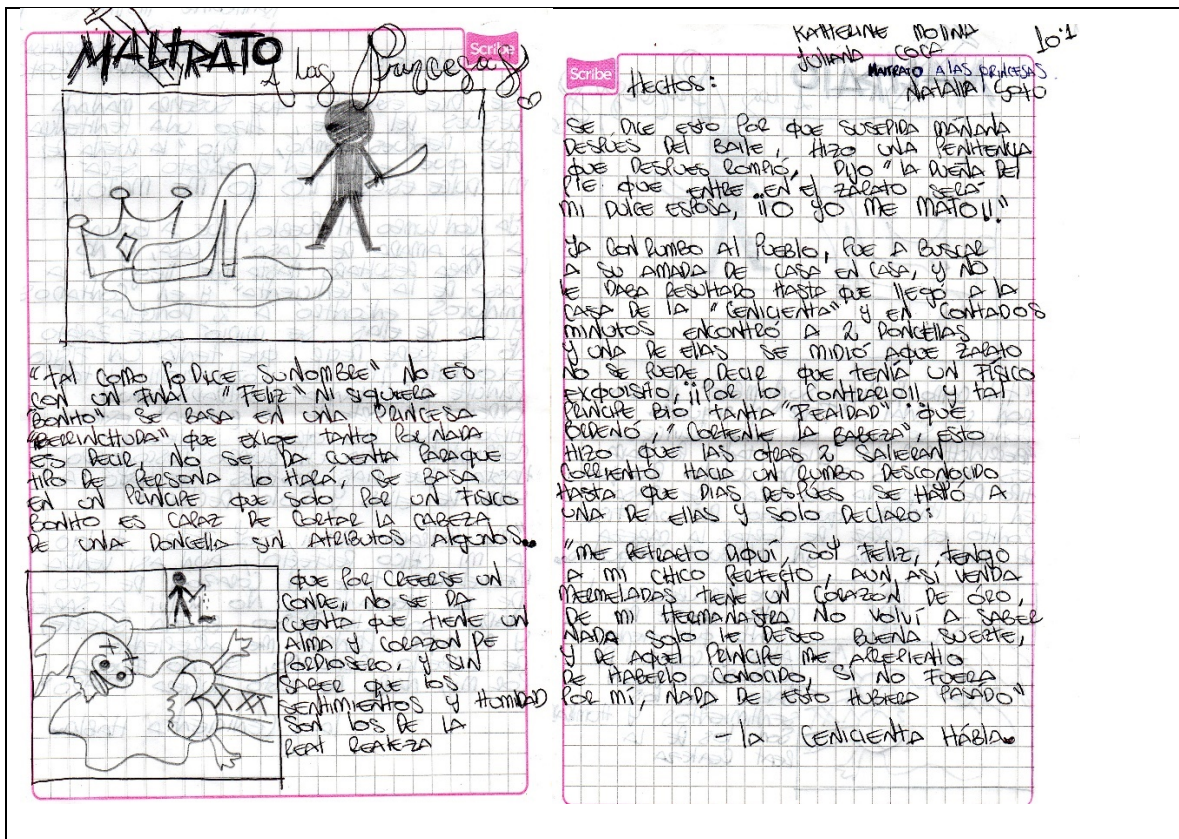 MALTRATO
A las Princesas
Scribe
"TAL COMO lo DICE SU NOMBRE" NO ES
CON UN FINAL "FELIZ" NI SIQUIERA
BONITO" SE BASA EN UNA PRINCESA
"BERRINCHUDA" QUE EXIGE TANTO POR NADA
ES DECIR, NO SE DA CUENTA PARAQUE
TIPO DE PERSONA LO HARÁ, SE BASA
EN UN PRÍNCIPE QUE SOLO POR UN FISICO
BONITO ES CAPAZ DE CORTAR LA CABEZA
DE UNA DONCELLA SIN ATRIBUTOS ALGUNOS..
QUE POR CREERSE UN
CONDE,, NO SE DA
CUENTA QUE TIENE UN
ALMA Y CORAZON DE
PORDIOSERO, Y SIN
SABER QUE LOS
SENTIMIENTOS Y HUMILDAD
SON LOS DE LA
REAL REALEZA
KATHERINE MOLINA 10:1
JULIANA COCA
MALTRATO A LAS PRINCESAS
NATALIA SOTO
Scribe
HECHOS:
SE DICE ESTO POR QUE SUSEPIDA MAÑANA
DESPUES DEL BAILE, HIZO UNA PENITENCIA
QUE DESPUES ROMPIÓ, DIJO "LA DUEÑA DEL
PIE QUE ENTRE EN EL ZAPATO SERÁ
MI DULCE ESPOSA, ¡¡O YO ME MATO!!"
YA CON RUMBO AL PUEBLO, FUE A BUSCAR
A SU AMADA DE CASA EN CASA, Y NO
LE DABA RESULTADO HASTA QUE LLEGÓ A LA
CASA DE LA "CENICIENTA" Y EN CONTADOS
MINUTOS ENCONTRÓ A 2 DONCELLAS
Y UNA DE ELLAS SE MIDIÓ AQUE ZAPATO
NO SE PUEDE DECIR QUE TENÍA UN FÍSICO
EXQUISITO, ¡¡POR LO CONTRARIO!! Y TAL
PRÍNCIPE BIO TANTA "FEALDAD" QUE
ORDENÓ, "CORTENLE LA BABEZA", ESTO
HIZO QUE LAS OTRAS 2 SALIERAN
CORRIENTO HACIA UN RUMBO DESCONOCIDO
HASTA QUE DIAS DESPUES SE HAYÓ A
UNA DE ELLAS Y SOLO DECLARO:
"ME RETRACTO DIQUÍ, SOY FELIZ, TENGO
A MI CHICO PERFECTO, AUN, ASI VENDA
MERMELADAS TIENE UN CORAZON DE ORO,
DE MI HERMANASTRA NO VOLVÍ A SABER
NADA SOLO LE DESEO BUENA SUERTE,
Y DE AQUEL PRINCIPE ME ARREPIENTO
DE HABERLO CONOCIDO, SI NO FUERA
POR MÍ, NADA DE ESTO HUBIERA PASADO"
- la CENICIENTA HÁBIA.